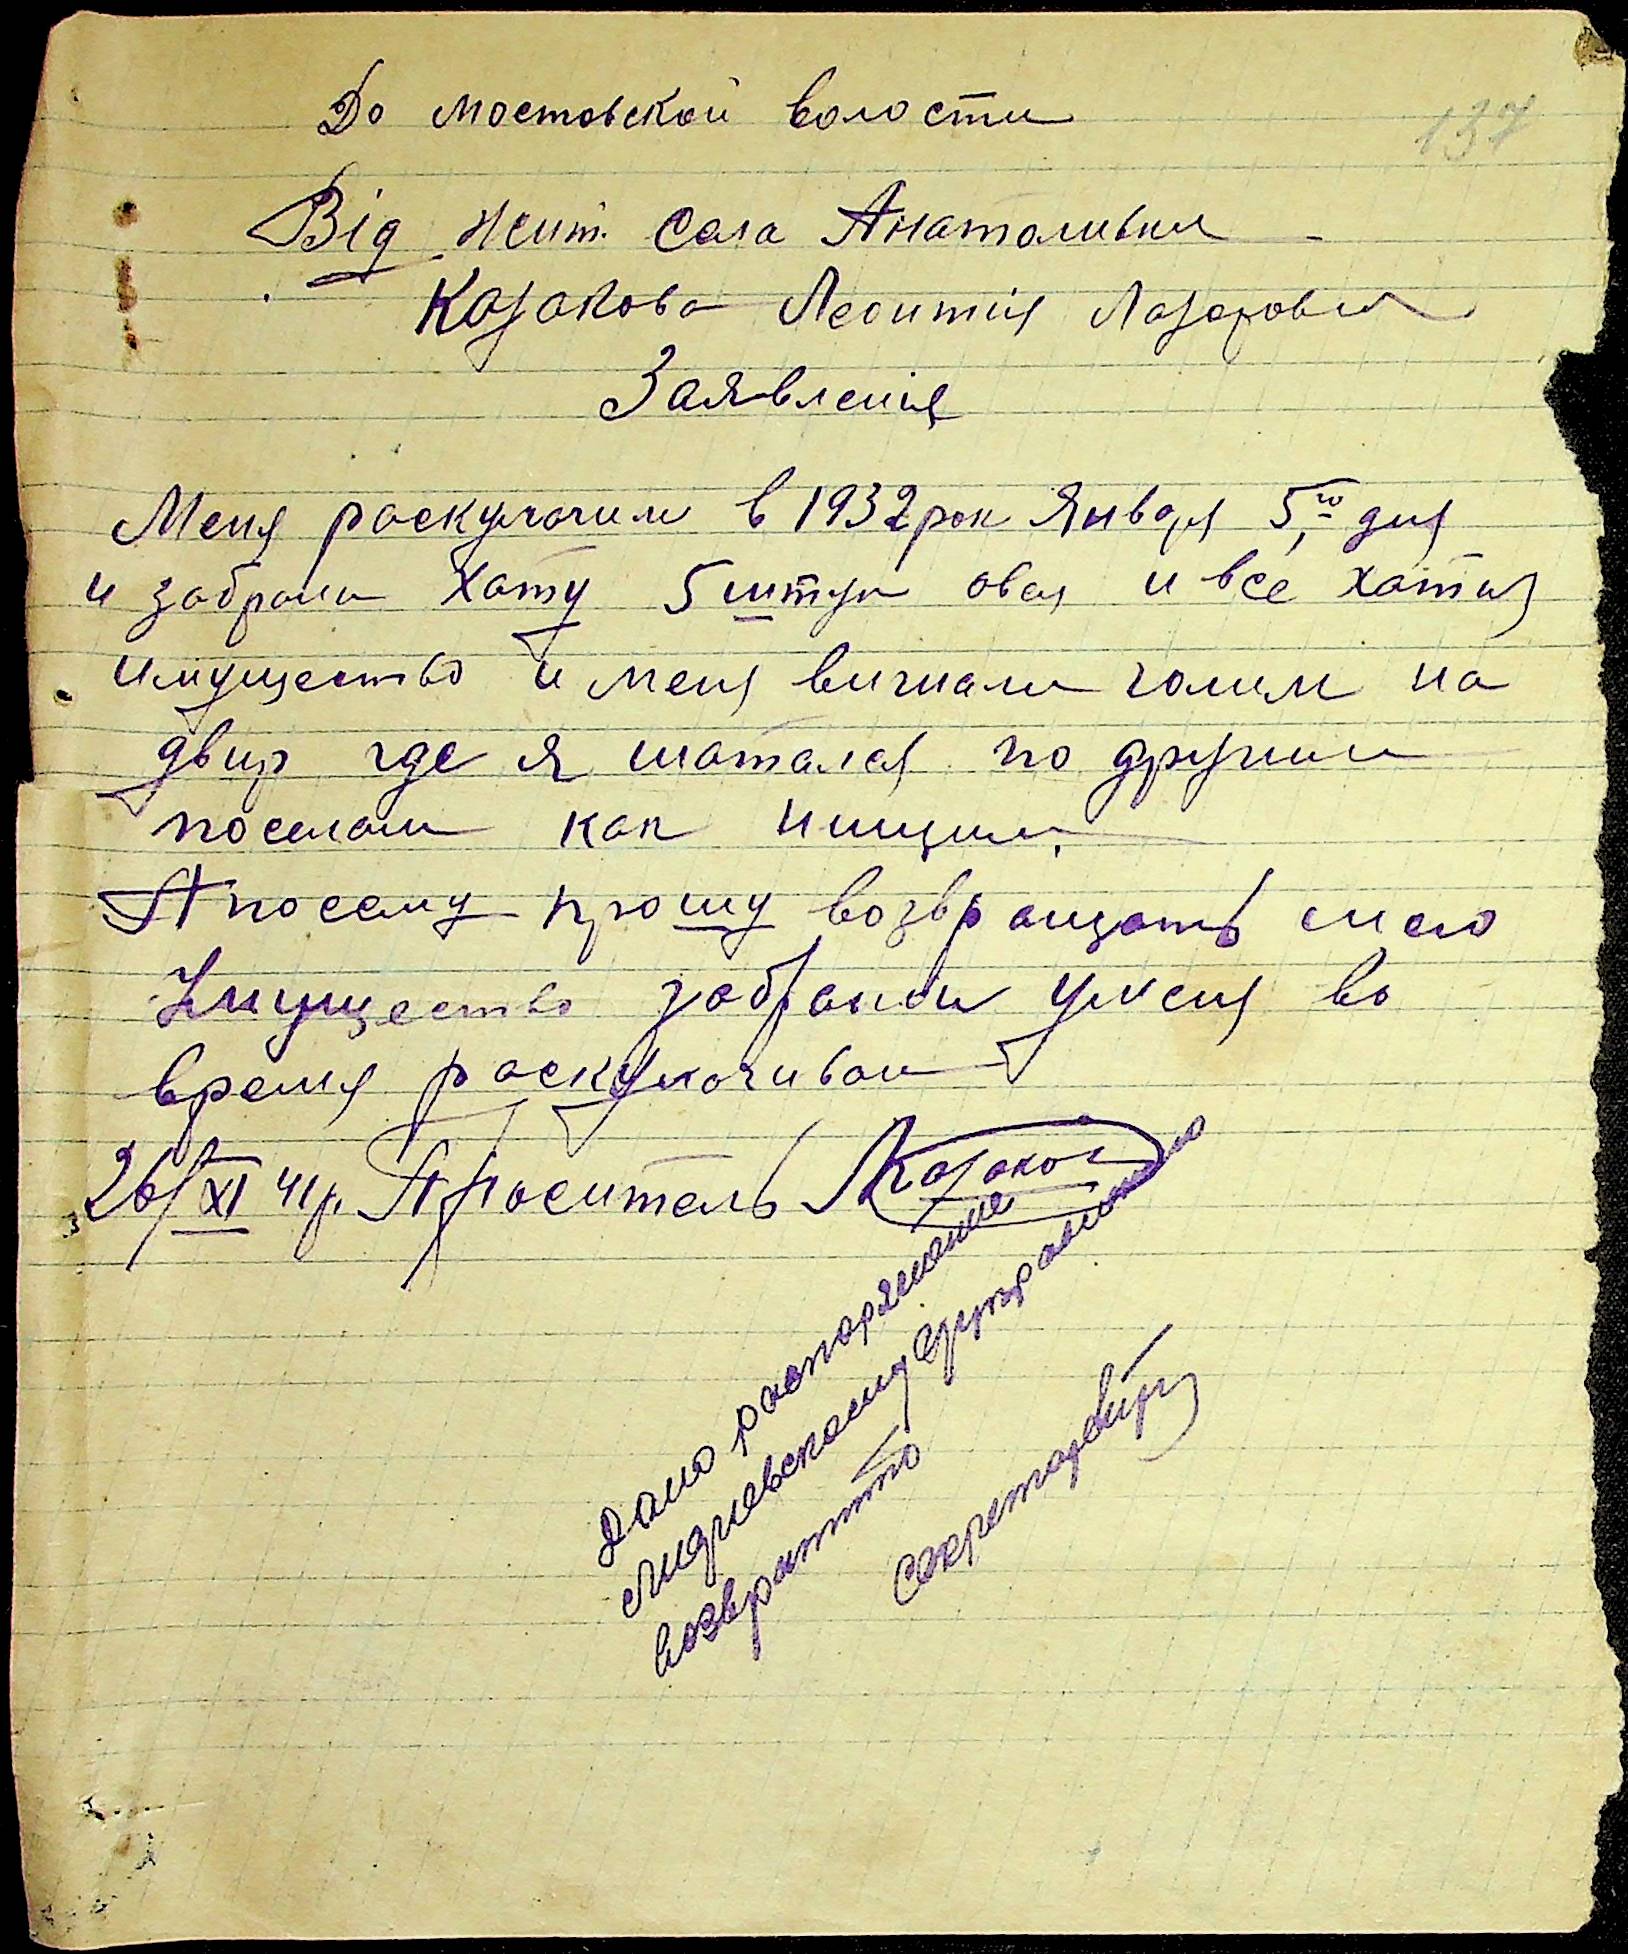 До мостовской волости
137
Від жит. села Анатоливки
Казакова Леонтія Лазарович
Заявленія
Меня роскулачили в 1932 рок Января 5,го дня
и забрали хату 5 штук овец и все хатнз
имущество и меня вигнали голим на
двир где я шатался по другим
поселам как нищим.
А посему прошу возвращать мое
Имущество забраной у меня во
время роскулачиваи
26/XI 41р. Проситель Казаков
Дано распоряжение
Лидиевскому сельуправлению
возвратить
Секретарь